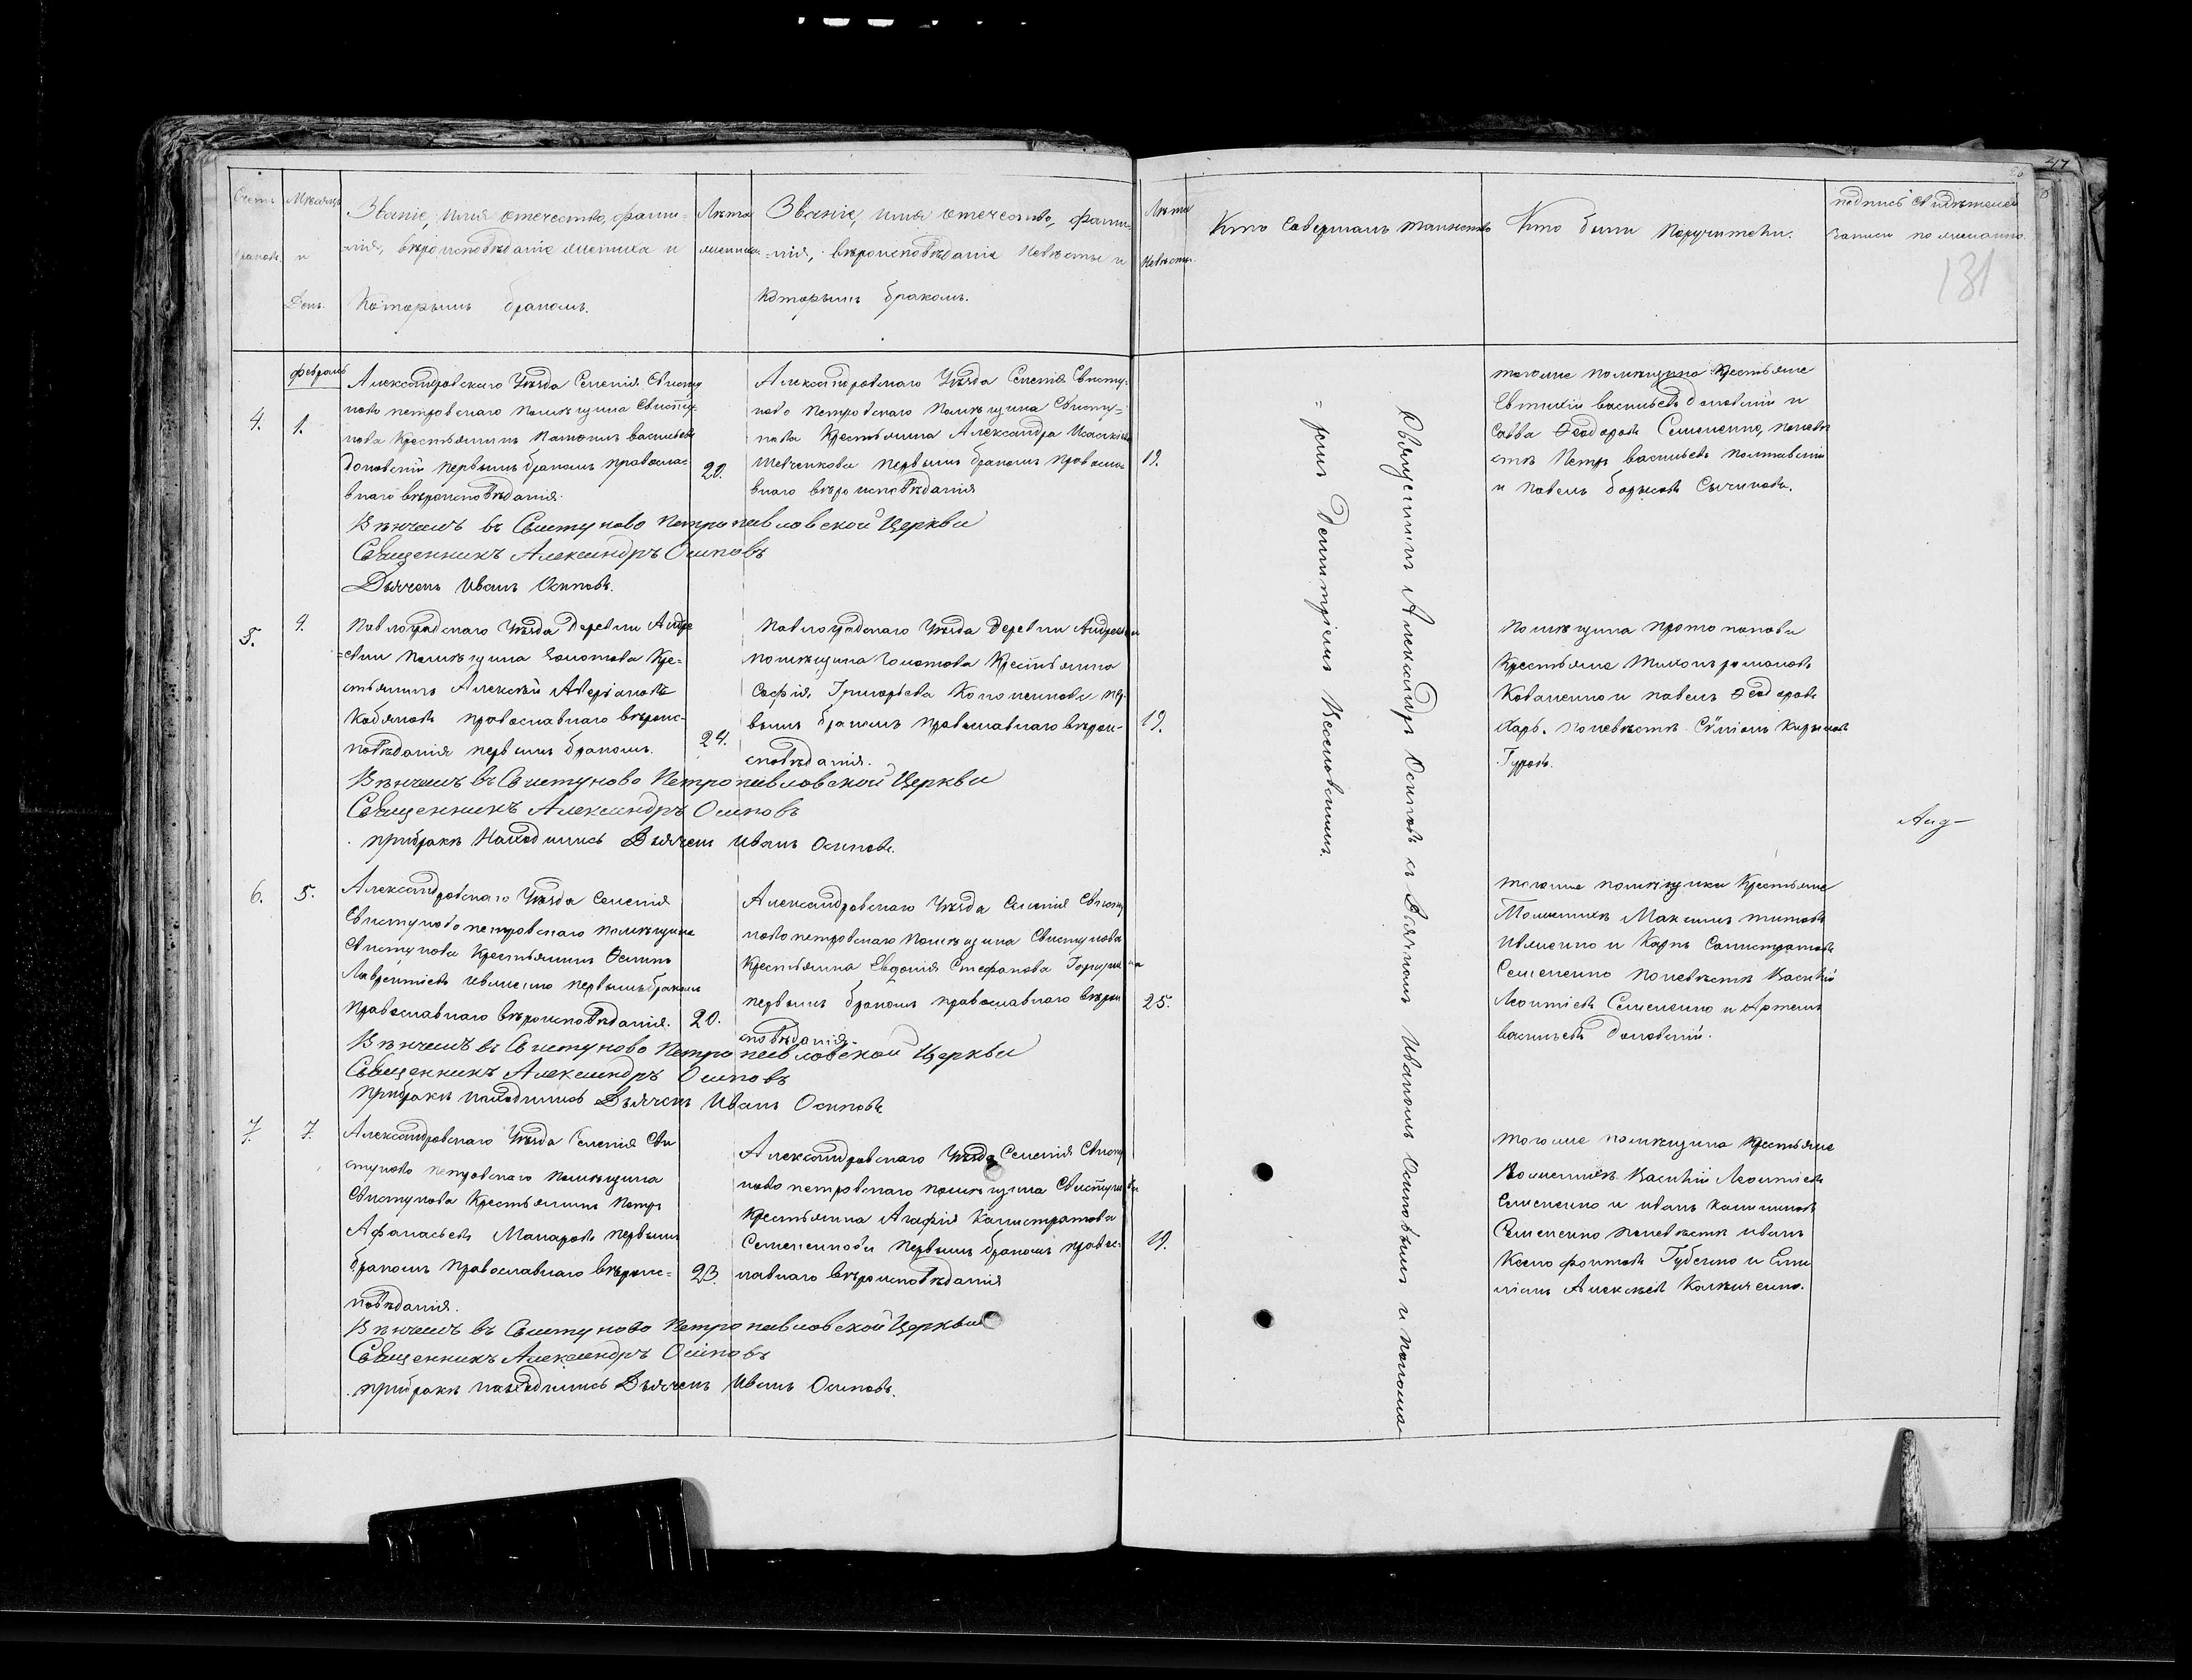 Счетъ браковъ.
Мѣсяцъ и День.
Званіе, имя отечество, фами=
лія, вѣроисповѣданіе жениха и
которымъ бракомъ.
Лѣта жениха.
Званіе, имя отечество, фами=
лія, вѣроисповѣданіе невѣсты и
которымъ бракомъ.
Лѣта невѣсты.
Кто совершалъ таинство
Кто были поручители.
подпись свидѣтелей
записи по желанію.
131
февраль
4.
1.
Александровскаго Уѣзда Селенія Свисту
ново петровскаго помѣщика Свисту-
нова Крестьянинъ васильевъ
доновскій первымъ бракомъ правосла-
внаго вѣроисповѣданія.
20.
Александровскаго Уѣзда Селенія Свисту-
ново петровскаго помѣщика Свисту=
нова Крестьянка Александра
Шевченкова первымъ бракомъ правосла-
внаго вѣроисповѣданія
19.
Вѣнчанъ въ Свистуново Петропавловской Церкви
Священникъ Александръ Осиповъ
Дьячекъ Иванъ Осиповъ.
тогоже помѣщика Крестьяне
Евтихій васильевъ доновскій и
Савва Ѳеодоровъ Семененко, поневѣ
стѣ Петръ васильевъ полтавскій
и павелъ борисовъ
5.
4.
Павлоградскаго Уѣзда Деревни Андре
=евки помѣщика Золотова Кре=
стьянинъ Алексѣй Аверіановъ
Кобяковъ православнаго вѣроис-
повѣданія первымъ бракомъ.
24.
Павлоградскаго Уѣзда Деревни Андреевки
помѣщика Золотова Крестьянка
Софія, Григорьева Кононенкова пер-
вымъ бракомъ православнаго вѣрои-
сповѣданія.
19.
Вѣнчанъ въ Свистуново Петропавловской Церкви
Священникъ Александръ Осиповъ
прибракѣ Находились Дьячекъ Иванъ Осиповъ.
Помѣщика протопопова
Крестьяне Тихонъ романовъ
Коваленко и павелъ Ѳеодоровъ
Харь. поневѣстѣ Сѵміонъ
Гуровъ.
6.
5.
Александровскаго Уѣзда Селенія
Свистуново петровскаго помѣщика
Свистунова Крестьянинъ Осипъ
Лаврентіевъ Ивженко первымъ бракомъ
православнаго вѣроисповѣданія.
20.
Александровскаго Уѣзда Селенія Свисту
ново петровскаго помѣщика Свистунова
Крестьянка Евдокія Стефанова
первымъ бракомъ православнаго вѣрои
сповѣданія.
25.
Вѣнчанъ въ Свистуново Петропавловской Церкви
Священникъ Александръ Осиповъ
прибракѣ находились Дьячекъ Иванъ Осиповъ
тогоже помѣщика Крестьяне
Пожениху Максимъ титовъ
Ивженко и Карпъ Калистратовъ
Семененко поневѣстѣ Василій
Леонтіевъ Семененко и Артемъ
васильевъ доновскій.
7.
7.
Александровскаго Уѣзда Селенія Сви
стуново петровскаго помѣщика
Свистунова Крестьянинъ Петръ
Афанасьевъ Макаровъ первымъ
бракомъ Православнаго вѣроис=
повѣданія.
23.
Александровскаго Уѣзда Селенія Свисту
ново петровскаго помѣщика Свистунова
Крестьянка Агафія Калистратова
Семененкова первымъ бракомъ правос-
лавнаго вѣроисповѣданія
19.
Вѣнчанъ въ Свистуново Петропавловской Церкви
Священникъ Александръ Осиповъ
прибракѣ находились Дьячекъ Иванъ Осиповъ.
тогоже помѣщика Крестьяне
Пожениху Василій Леонтіевъ
Семененко и иванъ калиниковъ
Семененко поневѣстѣ иванъ
Ксенофонтовъ Губенко и Еми
ліанъ Алексѣевъ
Священникъ Александръ Осиповъ съ Дьячкомъ Иваномъ Осиповымъ и понома
=ремъ Димитріемъ Козловскимъ.